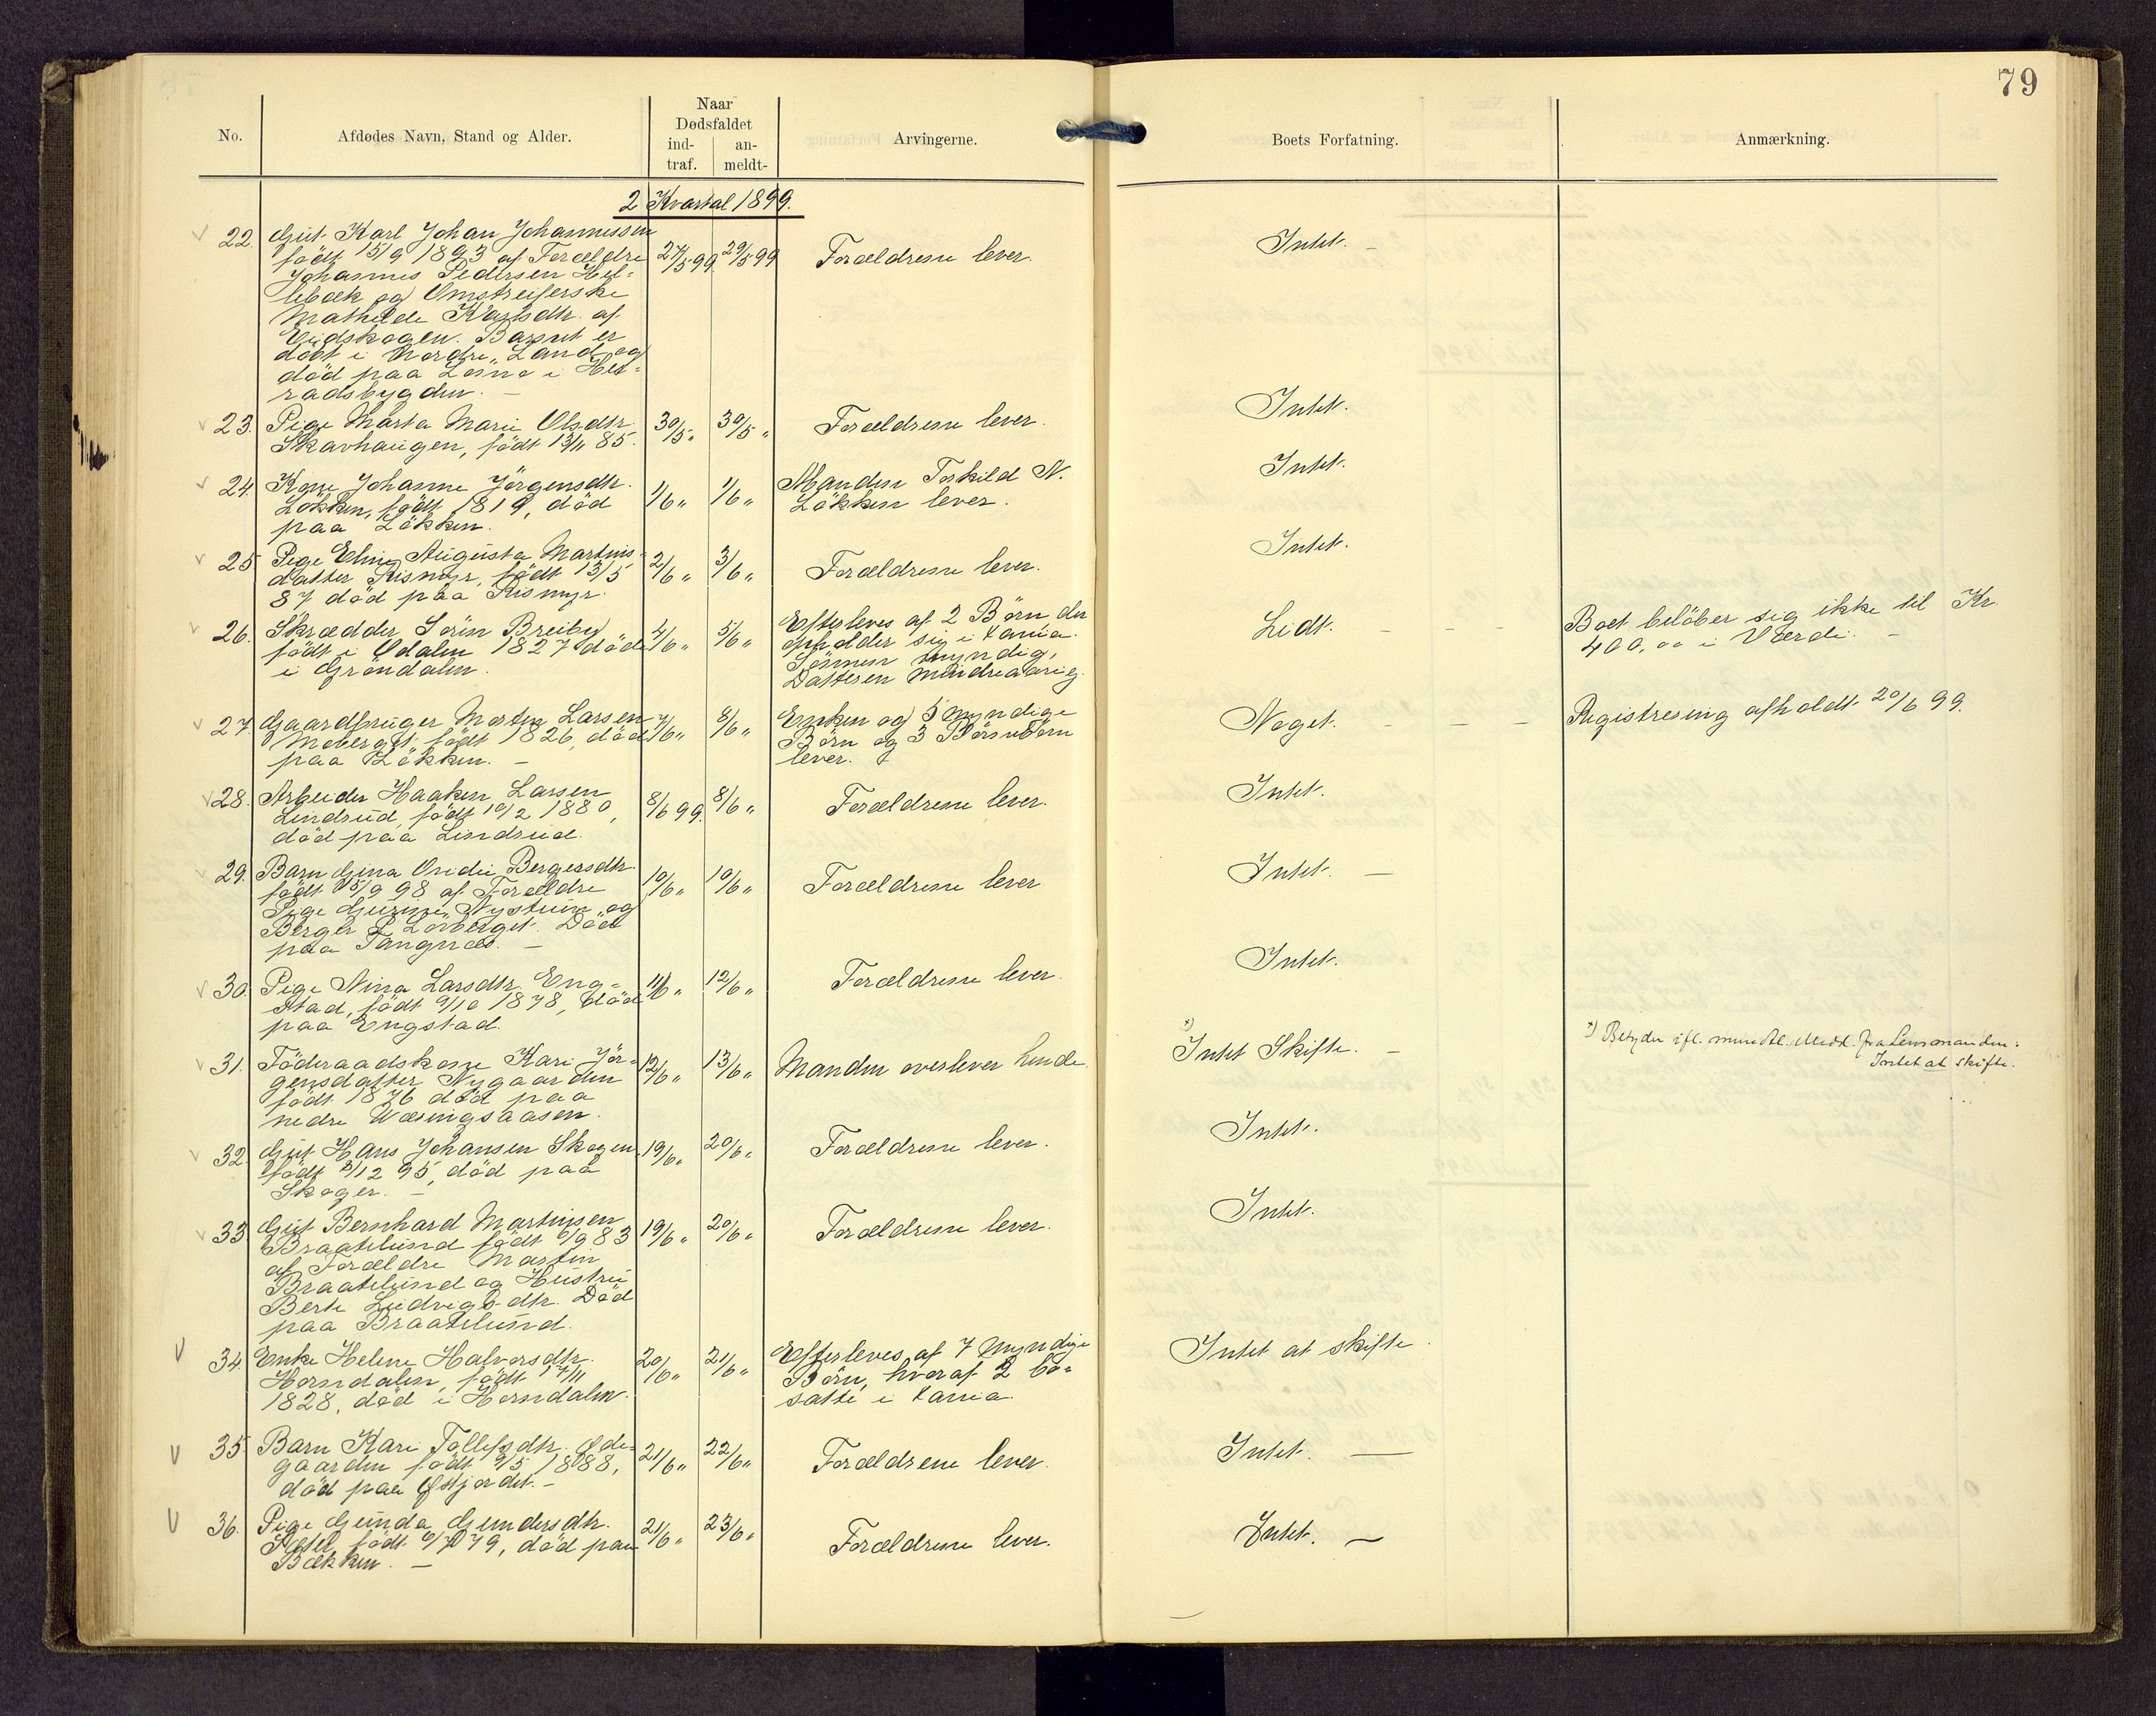 79
No.
Afdødes Navn, Stand og Alder.
Naar
Dødsfaldet
ind-
traf.
an-
meldt-
Arvingerne.
Boets Forfatning.
Anmærkning.
2 Kvartal 1899.
22. Gut Karl Johan Johannessen
født 15/9 1893 af Forældre 27/5 99 29/5 99 Forældrene lever. Intet. –
Johannes Pedersen Hel-
lebæk og Omstreiferske
Mathilde Karlsdtr. af
Eidskogen. Barnet er
døbt i Nordre Land og
død paa i
radsbygden. –
23. Pige Marta Marie Olsdtr. 30/5 " 30/5 " Forældrene lever. Intet.
Skavhaugen, født 13/11 85.
24. Kone Johanne Jörgensdtr. 1/6 " 1/6 " Manden Torkild N. Intet.
Lökken, født 1819, död Lökken lever.
paa Lökken.
25 Pige Eline Augusta Martins- 2/6 " 3/6 " Forældrene lever. Intet.
datter Rismyr, født 13/5
87 död paa Rismyr.
26. Skrædder Sörin Breiby 4/6 " 5/6 " Efterleves af 2 Börn der Lidt. – – – Boet belöber sig ikke til Kr.
født i Odalen 1827 död opholder sig i 400,00 i Værdi. –
i Gröndalen. Sönnen myndig,
Datteren mindreaarig.
27. Gaardbruger Morten Larsen 7/6 " 8/6 " Enken og 5 myndige Noget. – – – Registrering afholdt 20/6 99.
Moberget født 1826, død Börn og 3 Börnebörn
paa Lökken. – lever.
28. Arbeider Haaken Larsen 8/6 99. 8/6 " Forældrene lever. Intet.
Lindrud, født 10/2 1880,
död paa Lindrud.
29. Barn Gina Ovidie Bergersdtr. 10/6 " 10/6 " Forældrene lever Intet. –
født 15/9 98 af Forældre
Pige Gurine Nystuen og
Berger L. Lövberget. Död
paa Tangnæs. –
30. Pige Nina Larsdtr. Eng- 11/6 " 12/6 " Forældrene lever. Intet.
stad, født 9/10 1878, død
paa Engstad.
31. Föderaadskone Kari Jör- 12/6 " 13/6 " Manden overlever hende *) Intet Skifte. – *) Betyder ifl. mundtl. Medd. fra Lensmanden:
gensdatter Nygaarden Intet at skifte.
født 1876 död paa
nedre Væringsaasen.
32. Gut Hans Johansen Skogen 19/6 " 20/6 " Forældrene lever. Intet.
født 2/12 95, død paa
Skoger. –
33 Gut Bernhard Martinsen 19/6 " 20/6 " Forældrene lever. Intet.
Braatelund født 6/9 83
af Forældre Martin
Braatelund og Hustru
Berte Ludvigsdtr. Död
paa Braatelund.
34. Enke Helene Halvorsdtr. 20/6 " 21/6 " Efterleves af 7 myndige Intet at skifte.
Horndalen, født 17/11 Börn, hvoraf 2 bo-
1828, død i Horndalen. satte i
35. Barn Kari Tollefsdtr. Öde- 21/6 " 22/6 " Forældrene lever. Intet. —
gaarden født 9/5 1888,
död paa –
36. Pige Gunda Gundersdtr. 21/6 " 23/6 " Forældrene lever. Intet. –
født 6/7 79, död paa
Bækken. –